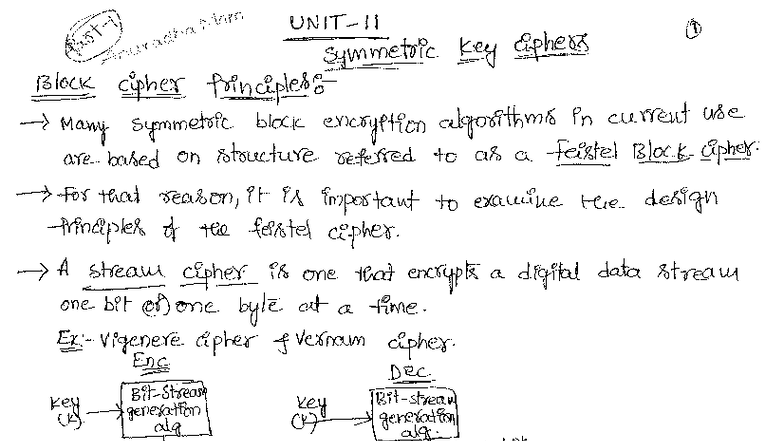 Part-1
Anuradha Mam
UNIT-II
①
Symmetric Key Ciphers
Block cipher Principles:-
→ Many symmetric block encryption algorithms in current use
are based on structure referred to as a feistel Block cipher.
→ for that reason, it is important to examine the design
principles of the feistel cipher.
→ A stream cipher is one that encrypts a digital data stream
one bit (or) one byte at a time.
Ex:- Vigenere cipher & Vernam cipher.
Enc
Dec
Key
(K)
Bit-stream
generation
alg
Key
(K)
Bit-stream
generation
alg.